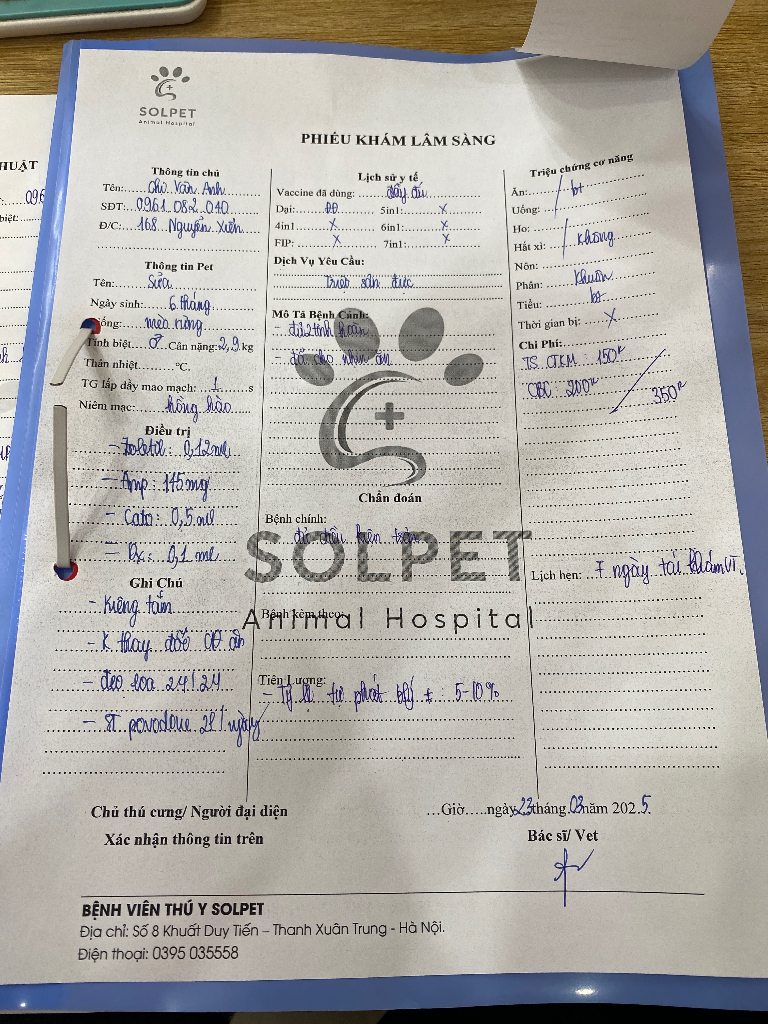 SOLPET
Animal Hospital
PHIẾU KHÁM LÂM SÀNG
HUẬT
096
biệt:
Thông tin chủ
Tên: Chị Vân Anh
SĐT: 0961.082.040
Đ/C: 168 Nguyễn Xiển
Thông tin Pet
Tên: Sữa
Ngày sinh: 6 tháng
Giống: mèo
Tính biệt: ♂ Cân nặng: 2,9 kg
Thân nhiệt °C.
TG lấp đầy mao mạch: 1 s
Niêm mạc: hồng hào
Điều trị
- Zoletil: 0,12ml
- Amp: 145mg
- Cato: 0,5ml
- Dx: 0,1ml
Ghi Chú
- Kiêng tắm
- K thay đổi CĐ ăn
- đeo loa 24/24
- ST povodone 2l/ngày
Lịch sử y tế
Vaccine đã dùng: đầy đủ
Dại: 5in1: x
4in1: x 6in1: x
FIP: x 7in1: x
Dịch Vụ Yêu Cầu:
Triệt sản đực
Mô Tả Bệnh Cảnh:
- đủ 2 tinh hoàn
- đã cho nhịn ăn
Chẩn đoán
Bệnh chính:
đủ điều kiện
SOLPET
Animal Hospital
Bệnh kèm theo:
Tiên Lượng:
- Tỷ lệ tự phát ±: 5-10%
Triệu chứng cơ năng
Ăn: bt
Uống:
Ho:
Hắt xì: không
Nôn:
Phân: khuôn
Tiểu: bt
Thời gian bị: x
Chi Phí:
TS CTKM: 150k
CBC: 200k
350k
Lịch hẹn: 7 ngày tái khám VT.
Chủ thú cưng/ Người đại diện
Xác nhận thông tin trên
...Giờ.....ngày 23 tháng 03 năm 2025.
Bác sĩ/ Vet
BỆNH VIỆN THÚ Y SOLPET
Địa chỉ: Số 8 Khuất Duy Tiến – Thanh Xuân Trung - Hà Nội.
Điện thoại: 0395 035558